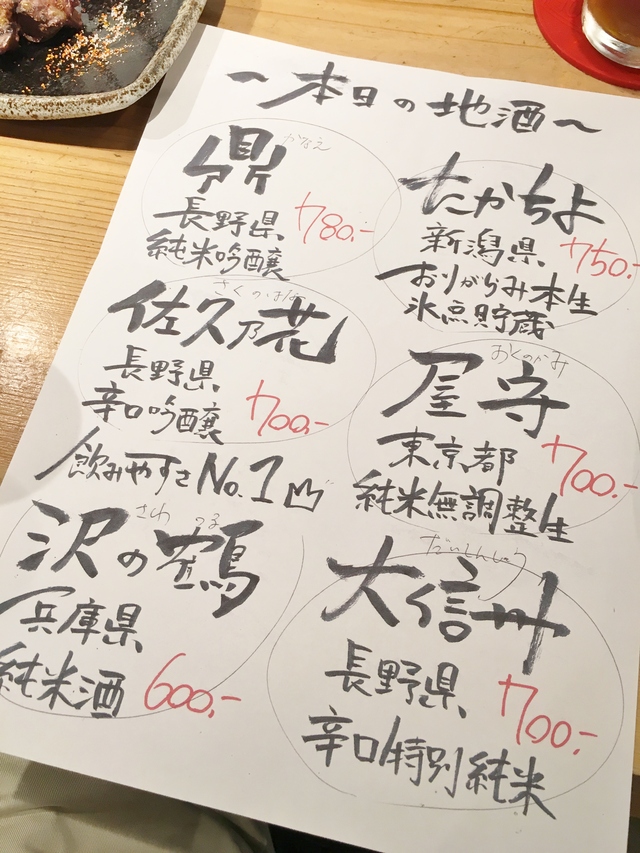 〜本日の地酒〜
かなえ
鼎
長野県
純米吟醸
780.-
たかちよ
新潟県
おりがらみ本生
氷点貯蔵
750.-
さくのはな
佐久乃花
長野県
辛口吟醸
700.-
飲みやすさNo.1
おくのかみ
屋守
東京都
純米無調整生
700.-
さわ の つる
沢の鶴
兵庫県
純米酒
600.-
だいしんしゅう
大信州
長野県
辛口特別純米
700.-